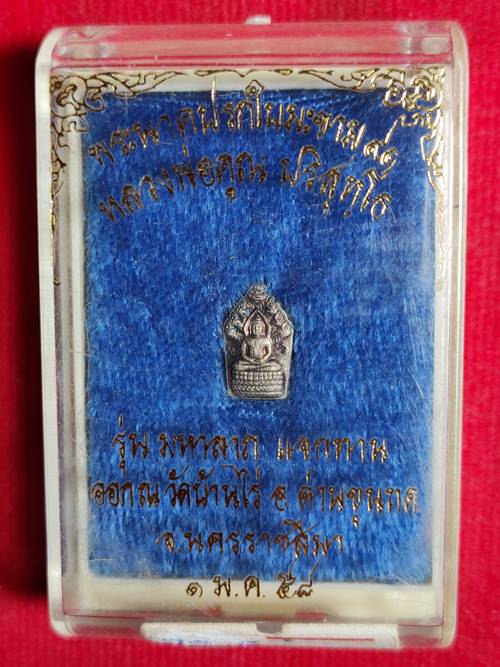 พระนาคปรกใบมะขาม ๙๑
หลวงพ่อคูณ ปริสุทฺโธ
รุ่น มหาลาภ แจกทาน
ออก ณ วัดบ้านไร่ อ ด่านขุนทด
จ.นครราชสีมา
๑ ม.ค. ๕๘